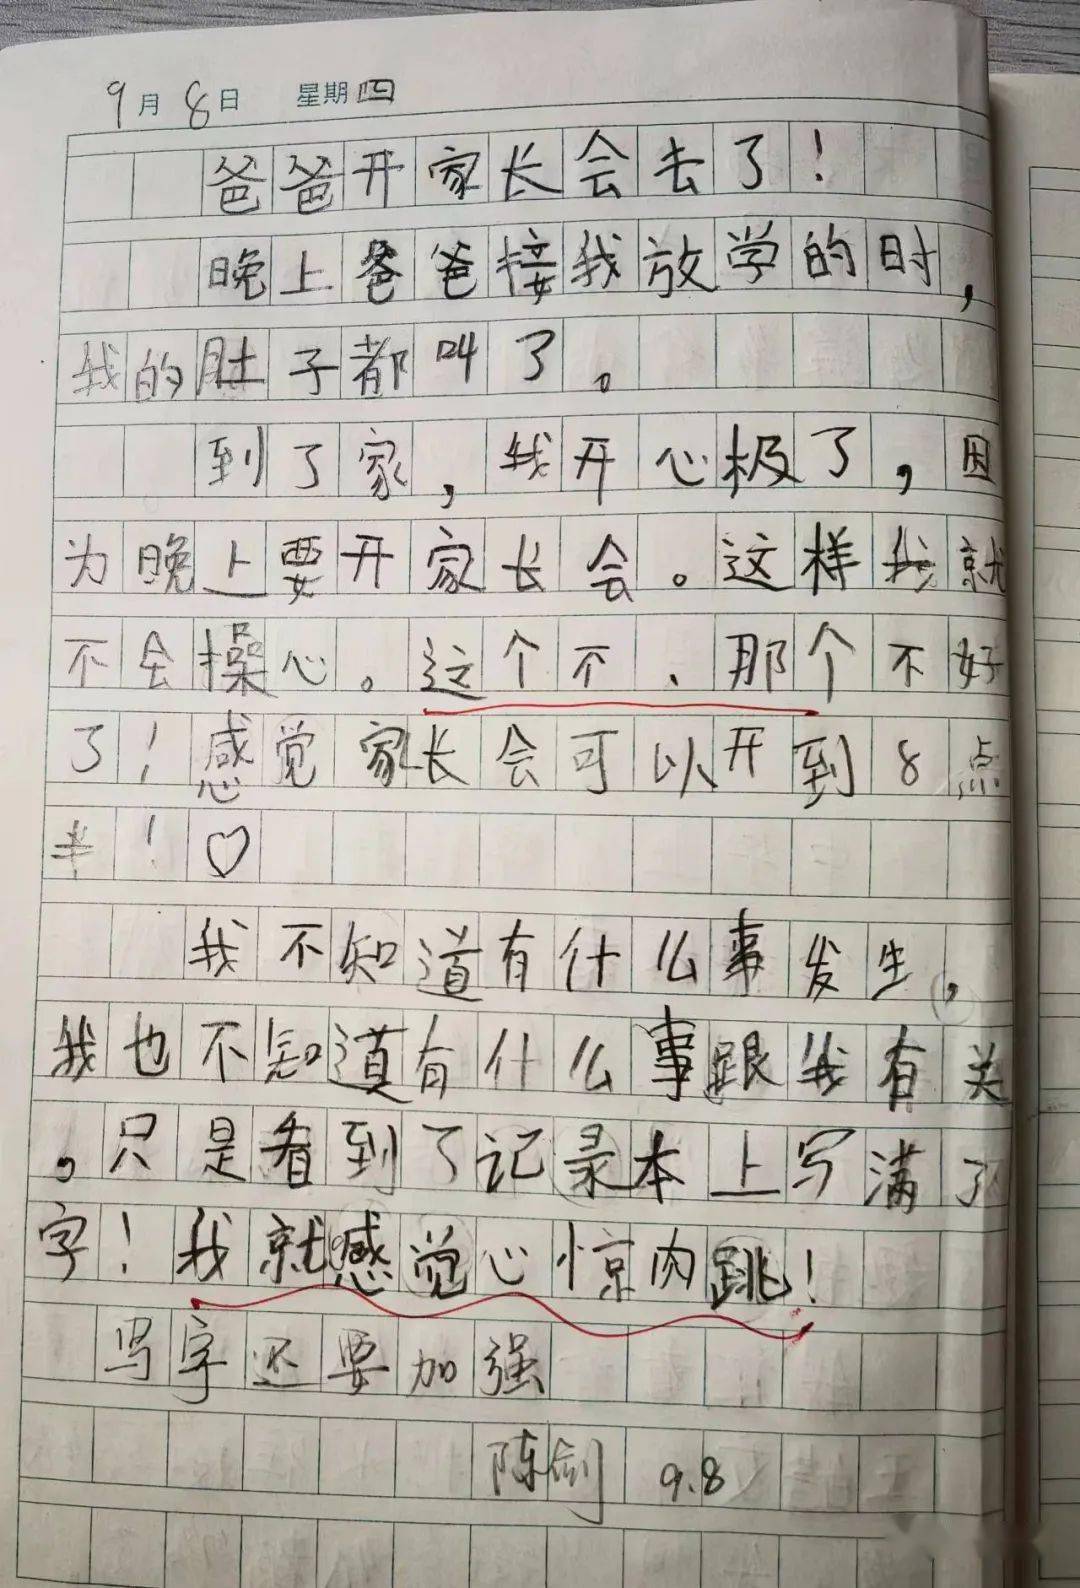 9月8日 星期四
爸爸开家长会去了！
晚上爸爸接我放学的时，
我的肚子都叫了。
到了家，我开心极了，因
为晚上要开家长会。这样我就
不会操心。这个不、那个不好
了！感觉家长会可以开到8点
半！♡
我不知道有什么事发生，
我也不知道有什么事跟我有关
。只是看到了记录本上写满了
字！我就感觉心惊肉跳！
写字还要加强
陈剑 9.8